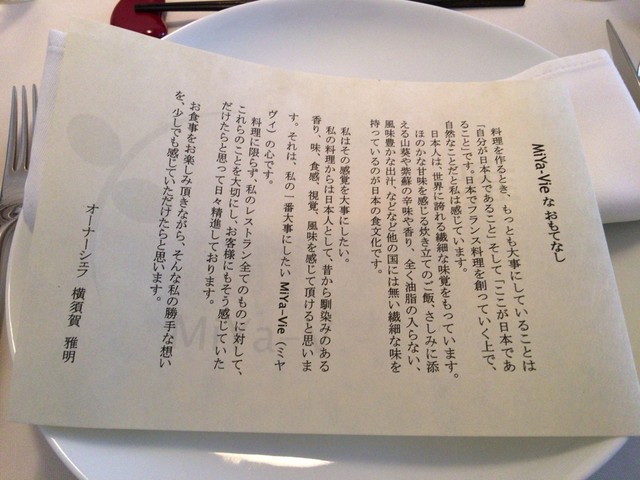 MiYa-Vie な おもてなし
料理を作るとき、もっとも大事にしていることは
「自分が日本人であること」そして「ここが日本であ
ること」です。日本でフランス料理を創っていく上で、
自然なことだと私は感じています。
日本人は、世界に誇れる繊細な味覚をもっています。
ほのかな甘味を感じる炊き立てのご飯、さしみに添
える山葵や紫蘇の辛味や香り、全く油脂の入らない、
風味豊かな出汁、などなど他の国には無い繊細な味を
持っているのが日本の食文化です。
私はその感覚を大事にしたい。
私の料理からは日本人として、昔から馴染みのある
香り、味、食感、視覚、風味を感じて頂けると思いま
す。それは、私の一番大事にしたい MiYa-Vie（ミヤ
ヴィ）の心です。
料理に限らず、私のレストラン全てのものに対して、
これらのことを大切にし、お客様にもそう感じていた
だけたらと思って日々精進しております。
お食事をお楽しみ頂きながら、そんな私の勝手な想い
を、少しでも感じていただけたらと思います。
オーナーシェフ 横須賀 雅明